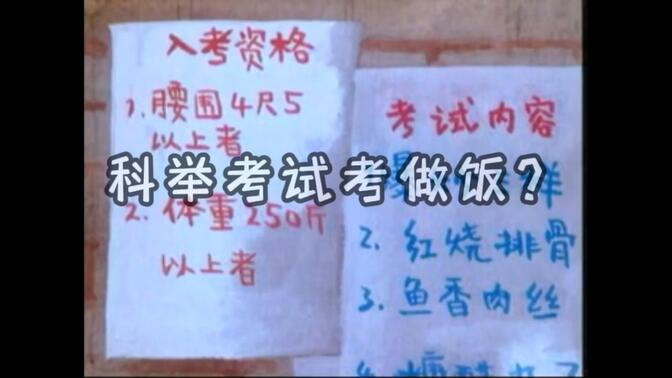 入考资格
1.腰围4尺5
以上者
2.体重250斤
以上者
科举考试考做饭?
考试内容
2.红烧排骨
3.鱼香肉丝
4.糖醋